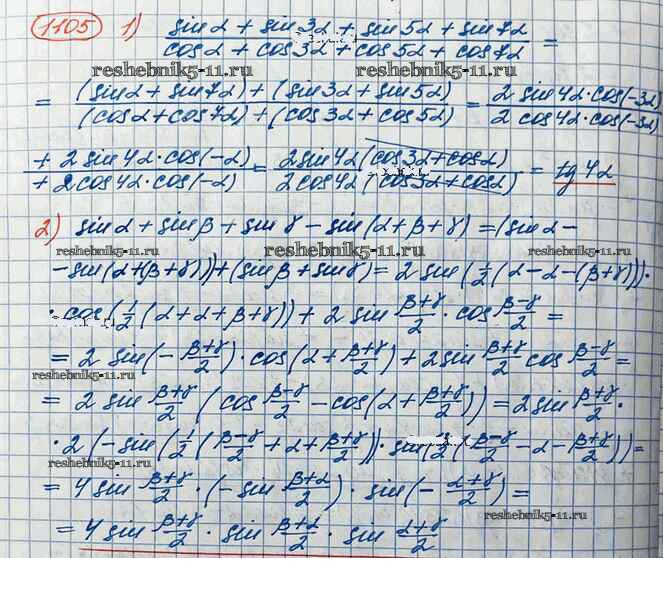 1105 1) sin α + sin 3α + sin 5α + sin 7α / cos α + cos 3α + cos 5α + cos 7α =
reshebnik5-11.ru reshebnik5-11.ru
= (sin α + sin 7α) + (sin 3α + sin 5α) / (cos α + cos 7α) + (cos 3α + cos 5α) = 2 sin 4α · cos(-3α) / 2 cos 4α · cos(-3α)
+ 2 sin 4α · cos(-α) / + 2 cos 4α · cos(-α) = 2 sin 4α (cos 3α + cos α) / 2 cos 4α (cos 3α + cos α) = tg 4α
2) sin α + sin β + sin γ - sin(α + β + γ) = (sin α -
reshebnik5-11.ru reshebnik5-11.ru reshebnik5-11.ru
- sin(α + (β + γ))) + (sin β + sin γ) = 2 sin(1/2 (α - α - (β + γ))) ·
· cos(1/2 (α + α + β + γ)) + 2 sin β+γ/2 · cos β-γ/2 =
= 2 sin(- β+γ/2) · cos(α + β+γ/2) + 2 sin β+γ/2 cos β-γ/2 =
reshebnik5-11.ru
= 2 sin β+γ/2 (cos β-γ/2 - cos(α + β+γ/2)) = 2 sin β+γ/2 ·
· 2 (- sin(1/2 (β-γ/2 + α + β+γ/2)) · sin(1/2 (β-γ/2 - α - β+γ/2)) =
reshebnik5-11.ru
= 4 sin β+γ/2 · (- sin β+α/2) · sin(- α+γ/2) =
reshebnik5-11.ru
= 4 sin β+γ/2 · sin β+α/2 · sin α+γ/2